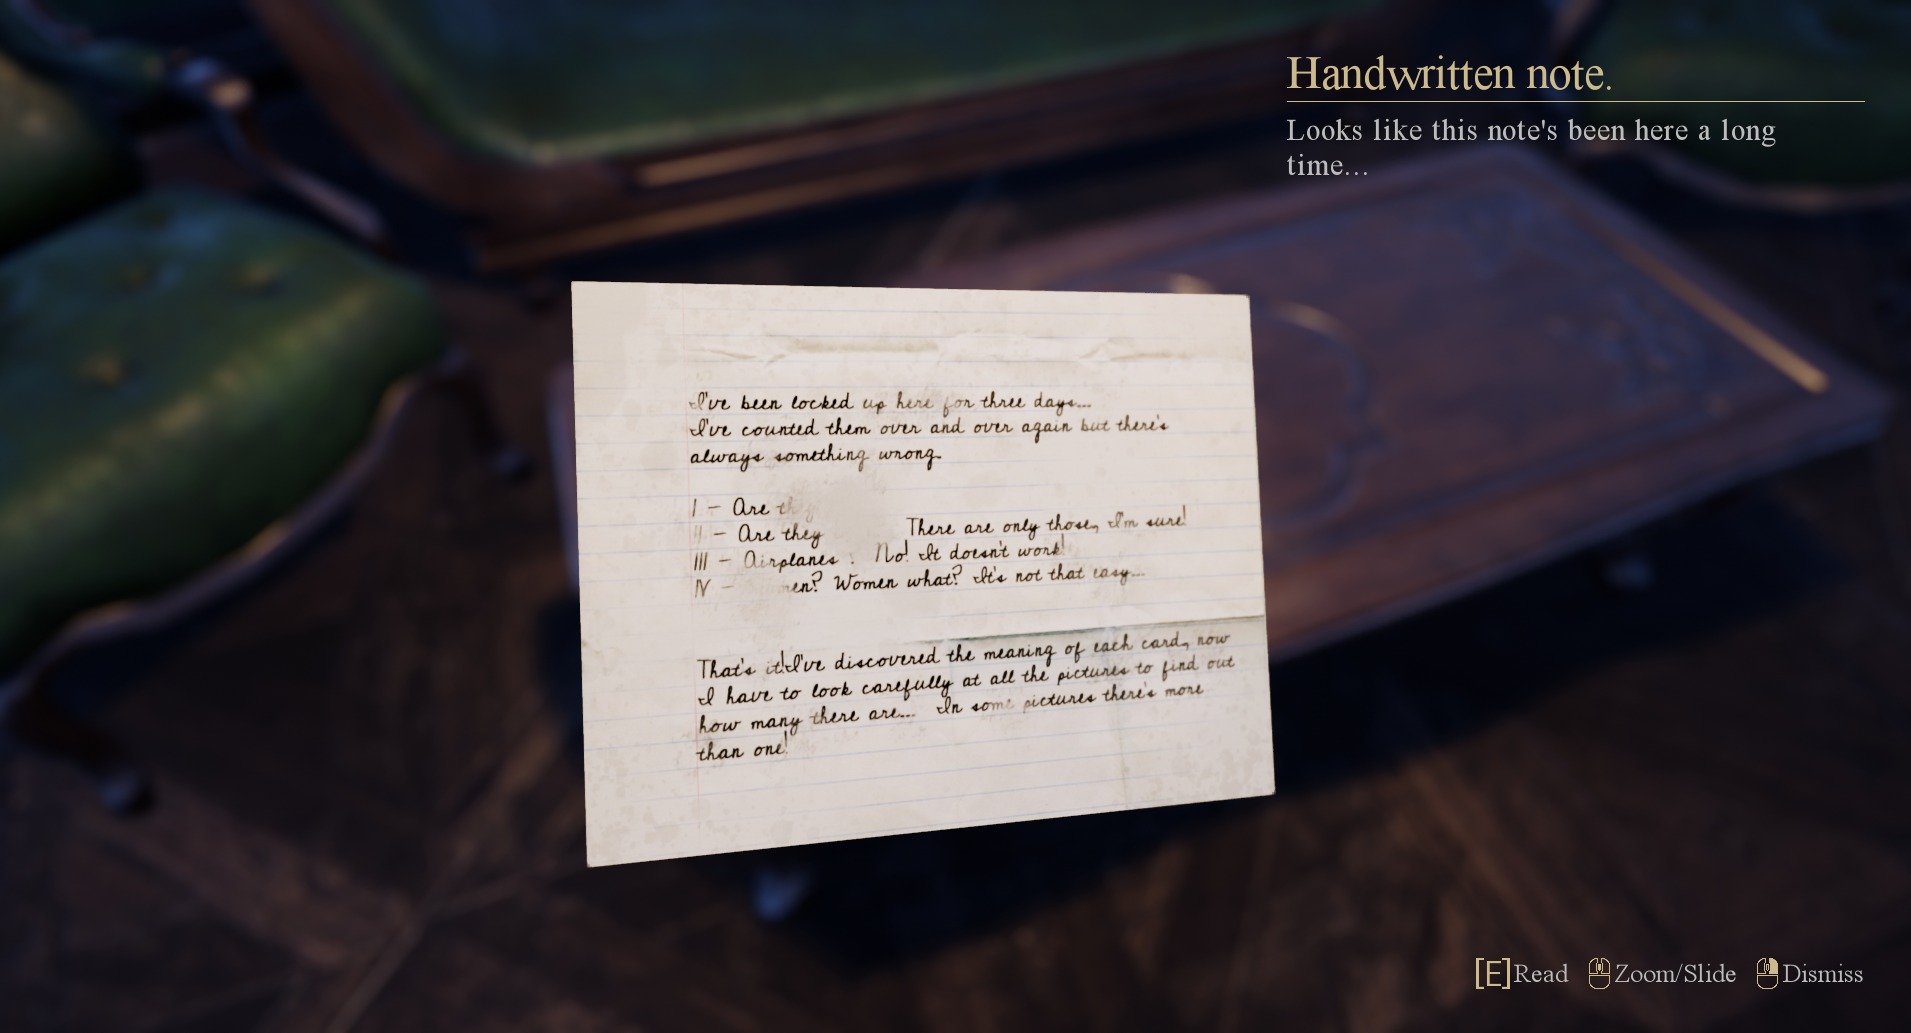 Handwritten note.
Looks like this note's been here a long
time...
I've been locked up here for three days...
I've counted them over and over again but there's
always something wrong.
I - Are they
II - Are they There are only those, I'm sure!
III - Airplanes : No! It doesn't work!
IV - men? Women what? It's not that easy...
That's it! I've discovered the meaning of each card, now
I have to look carefully at all the pictures to find out
how many there are... In some pictures there's more
than one!
[E]Read Zoom/Slide Dismiss